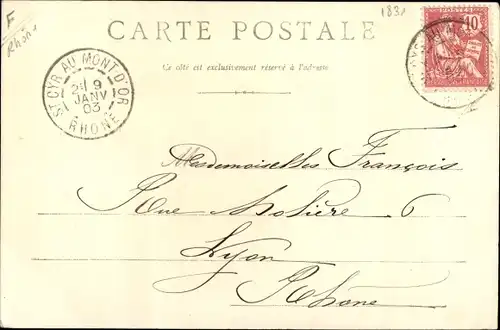 F
Rhône
183
CARTE POSTALE
Ce côté est exclusivement réservé à l'adresse
10
ST CYR AU MONT-D'OR
9
JANV
03
RHONE
Mesdemoiselles François
Rue Molière 6
Lyon
Rhône